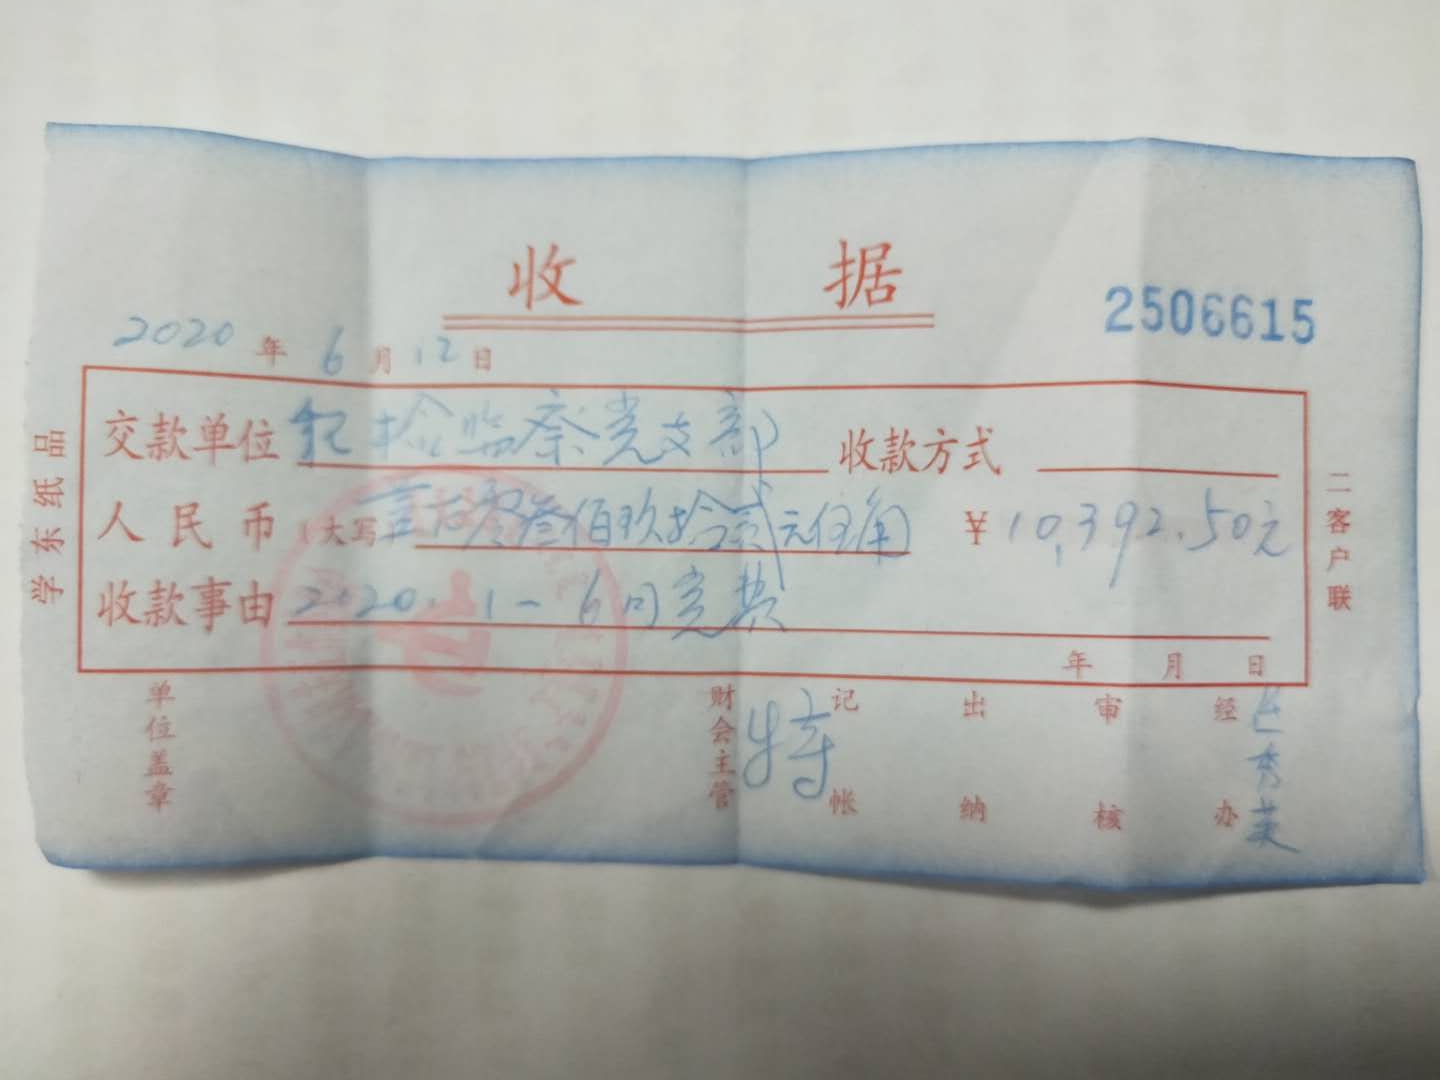 收 据
2506615
2020 年 6 月 12 日
交款单位 纪检监察党支部 收款方式
人民币（大写 壹万零叁佰玖拾贰元伍角 ￥10,392.50元
收款事由 2020.1-6月党费
年 月 日
单位盖章 财会主管 记帐 出纳 审核 经办 秀英
学东纸品
二客户联